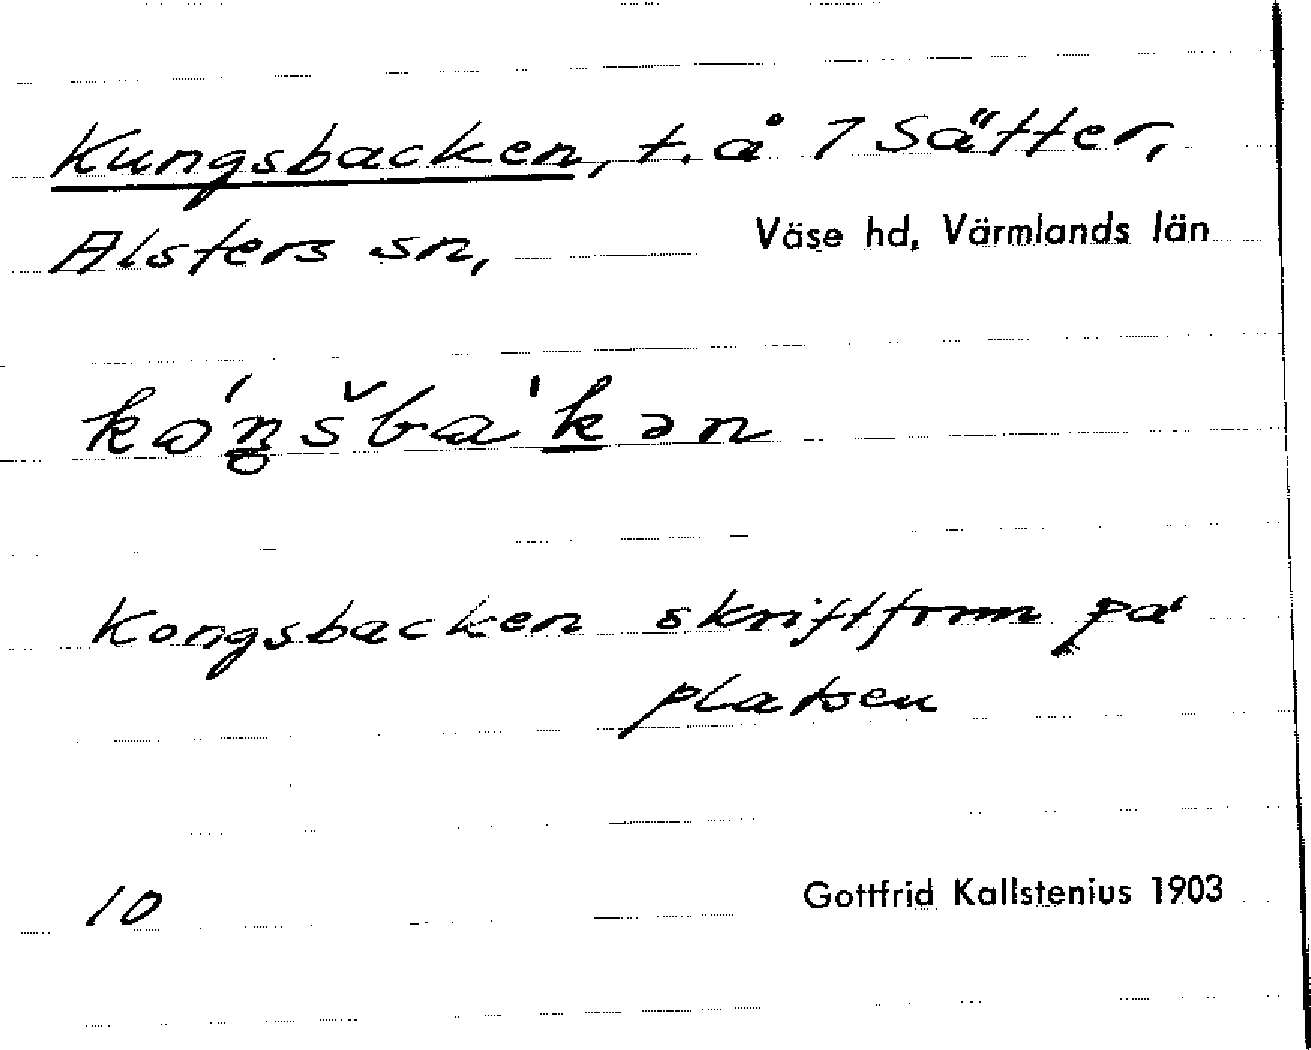 Kungsbacken, t. å 7 Sätter,
Alsters sn, Väse hd, Värmlands län
Kongsbacken skriftform på
platsen
10 Gottfrid Kallstenius 1903